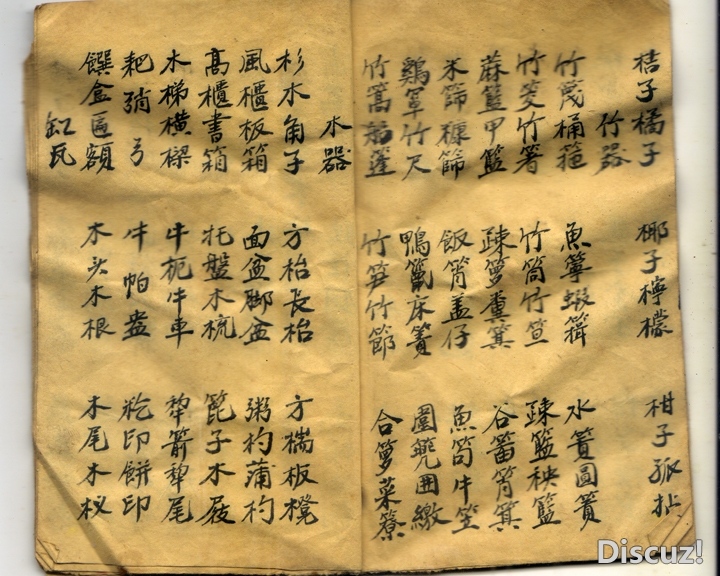 桔子橘子 椰子檸檬 柑子孤拈
竹器
竹篾桶箍 魚篝蝦 水簣圖簣
竹筊竹箸 竹筒竹笪 疎籃秧籃
蔴籃甲籃 疎箩糞箕 谷筲箕
米篩糠篩 飯筲盖仔 魚筍牛
鷄罩竹尺 鴨床簀 圍囲繳
竹篙蓬 竹笋竹節 合箩菜
木器
杉木角子 方枱長枱 方櫈板櫈
風櫃板箱 面盆脚盆 粥杓蒲杓
高櫃書箱 托盤木梳 篦子木屐
木梯横樑 牛軛牛車 犂箭犂尾
耙弓 牛帕盎 籺印餅印
饌盒匾額 木头木根 木尾木杈
缸瓦
Discuz!